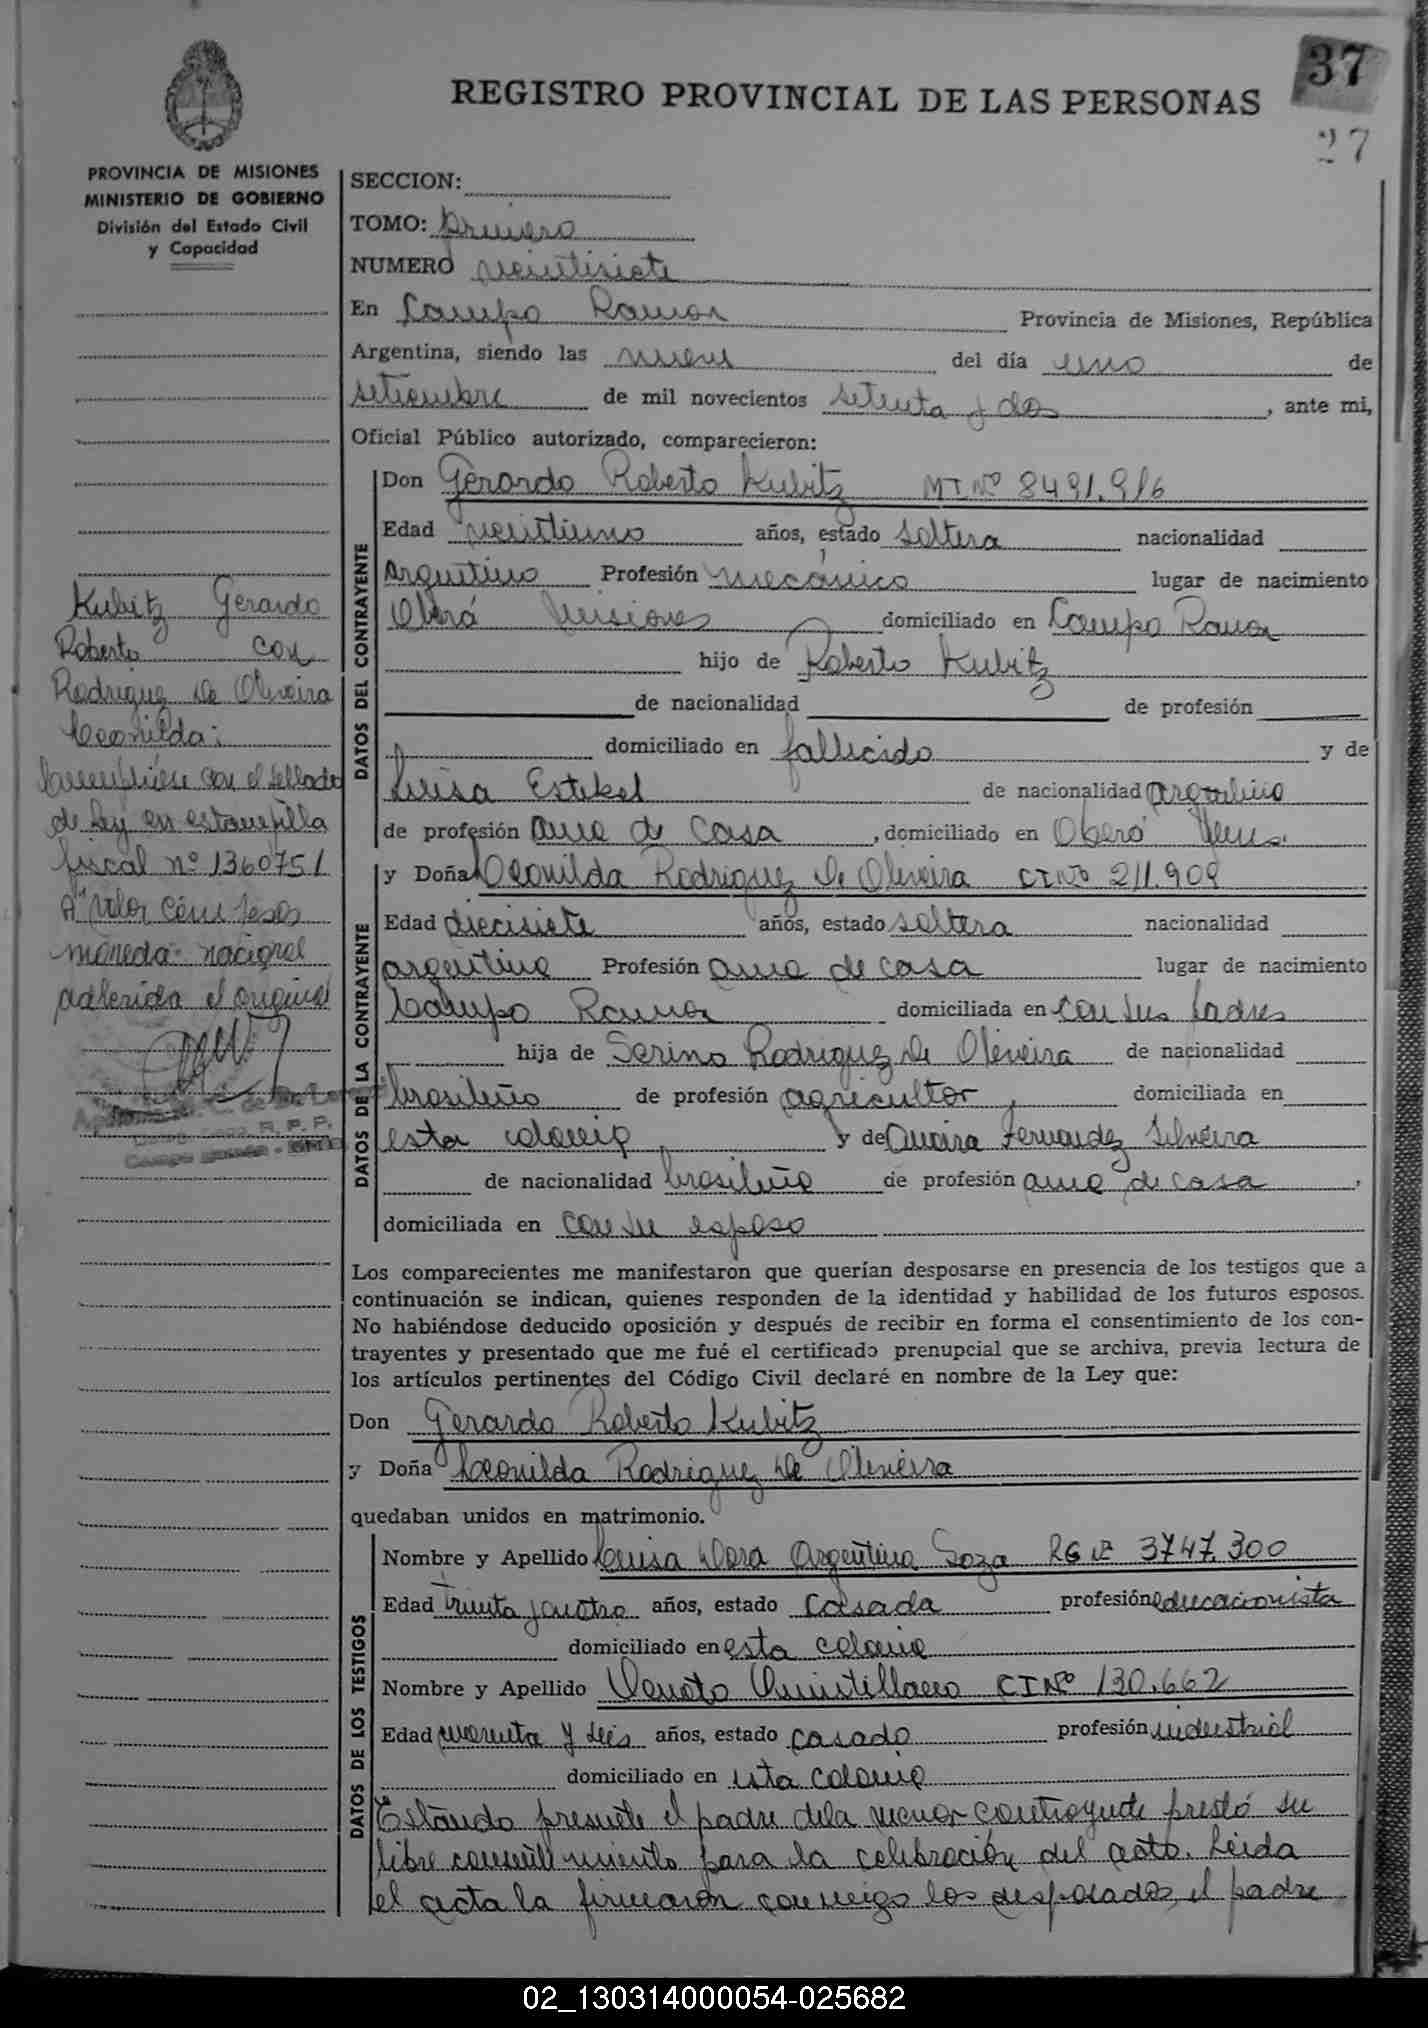 37
27
REGISTRO PROVINCIAL DE LAS PERSONAS
PROVINCIA DE MISIONES
MINISTERIO DE GOBIERNO
División del Estado Civil
y Capacidad
SECCION:
TOMO: primero
NUMERO veintisiete
En Campo Ramon Provincia de Misiones, República
Argentina, siendo las nueve del día uno de
setiembre de mil novecientos setenta y dos, ante mi,
Oficial Público autorizado, comparecieron:
DATOS DEL CONTRAYENTE
Don Gerardo Roberto Kubitz MI Nº 8491.916
Edad veintiuno años, estado soltera nacionalidad
Argentino Profesión mecánico lugar de nacimiento
Oberá Misiones domiciliado en Campo Ramon
hijo de Roberto Kubitz
de nacionalidad de profesión
domiciliado en fallecido y de
Luisa Estekel de nacionalidad argentino
de profesión ama de casa, domiciliado en Oberá Mnes.
DATOS DE LA CONTRAYENTE
y Doña Leonilda Rodriguez De Oliveira CI Nº 211.909
Edad diecisiete años, estado soltera nacionalidad
argentina Profesión ama de casa lugar de nacimiento
Campo Ramon domiciliada en con sus padres
hija de Serino Rodriguez De Oliveira de nacionalidad
brasileño de profesión agricultor, domiciliada en
esta colonia y de Fernandez Silveira
de nacionalidad brasileña de profesión ama de casa,
domiciliada en con su esposo
Los comparecientes me manifestaron que querían desposarse en presencia de los testigos que a
continuación se indican, quienes responden de la identidad y habilidad de los futuros esposos.
No habiéndose deducido oposición y después de recibir en forma el consentimiento de los con-
trayentes y presentado que me fué el certificado prenupcial que se archiva, previa lectura de
los artículos pertinentes del Código Civil declaré en nombre de la Ley que:
Don Gerardo Roberto Kubitz
y Doña Leonilda Rodriguez De Oliveira
quedaban unidos en matrimonio.
DATOS DE LOS TESTIGOS
Nombre y Apellido Luisa Dora Argentina Soza 3747.300
Edad treinta y cuatro años, estado casada profesión educacionista
domiciliado en esta colonia
Nombre y Apellido CI Nº 130.662
Edad cuarenta y seis años, estado casado profesión industrial
domiciliado en esta colonia
Estando presente el padre dela menor contrayente prestó su
libre consentimiento para la celebración del acto. Leida
el acta la firmaron conmigo los desposados, el padre
Kubitz Gerardo
Roberto con
Rodriguez De Oliveira
Leonilda:
con el sellado
de Ley en estampilla
fiscal nº 1360751
valor cien pesos
moneda nacional
adherida el original
02_130314000054-025682